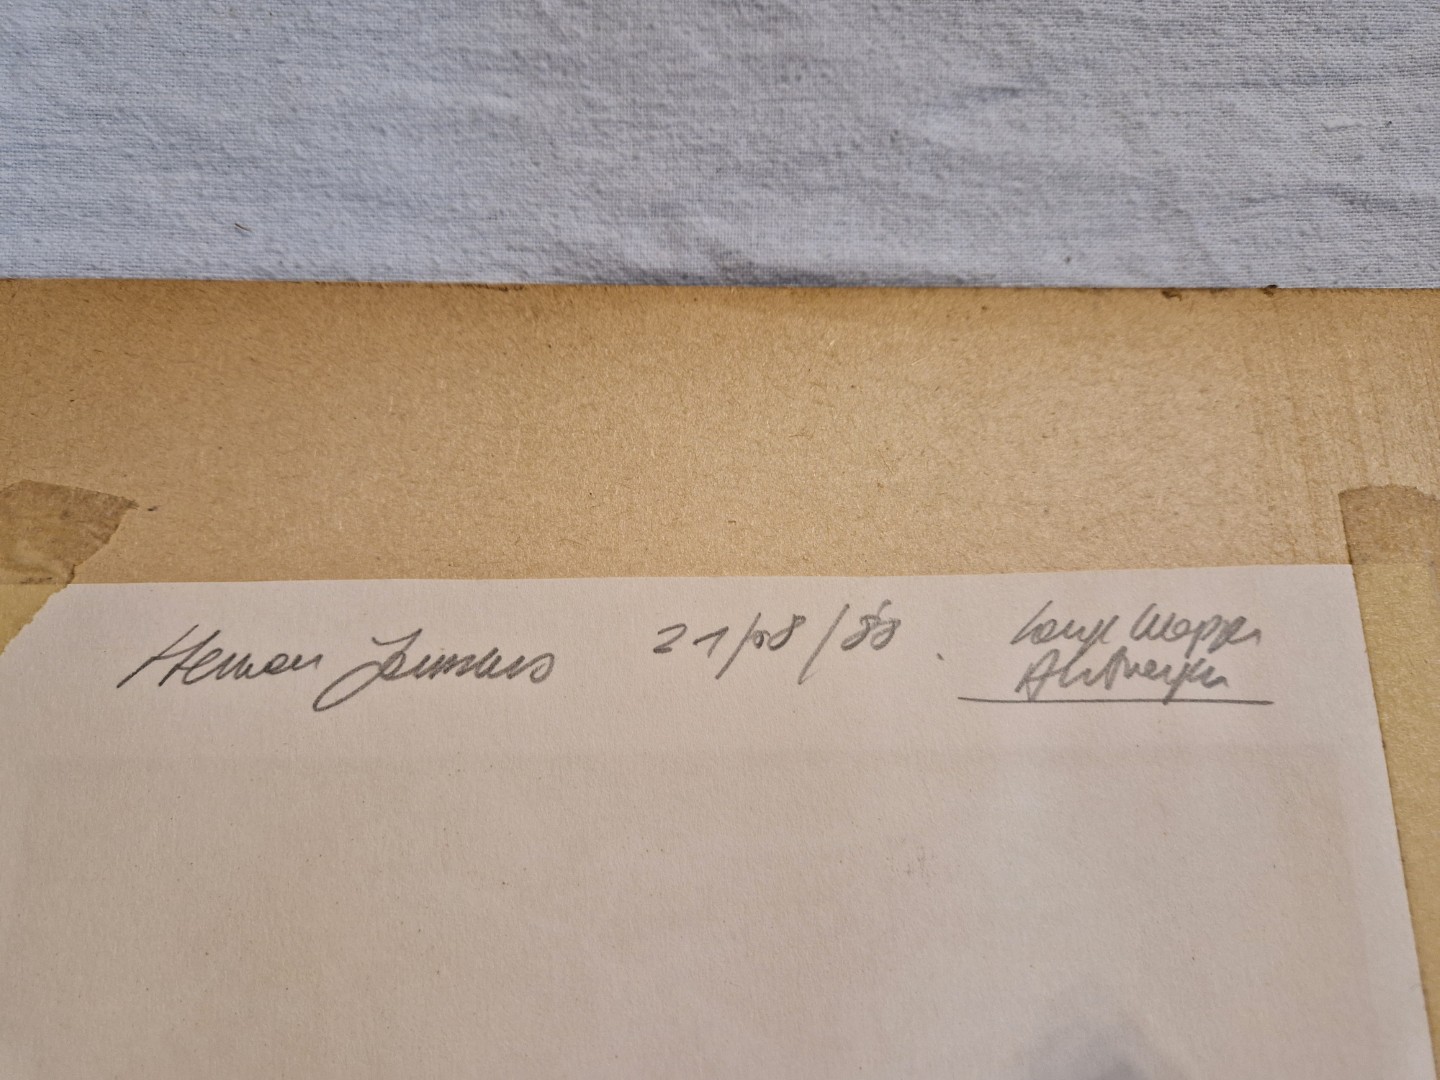 Herman Janssens 21/08/88. Lange Wapper
Antwerpen